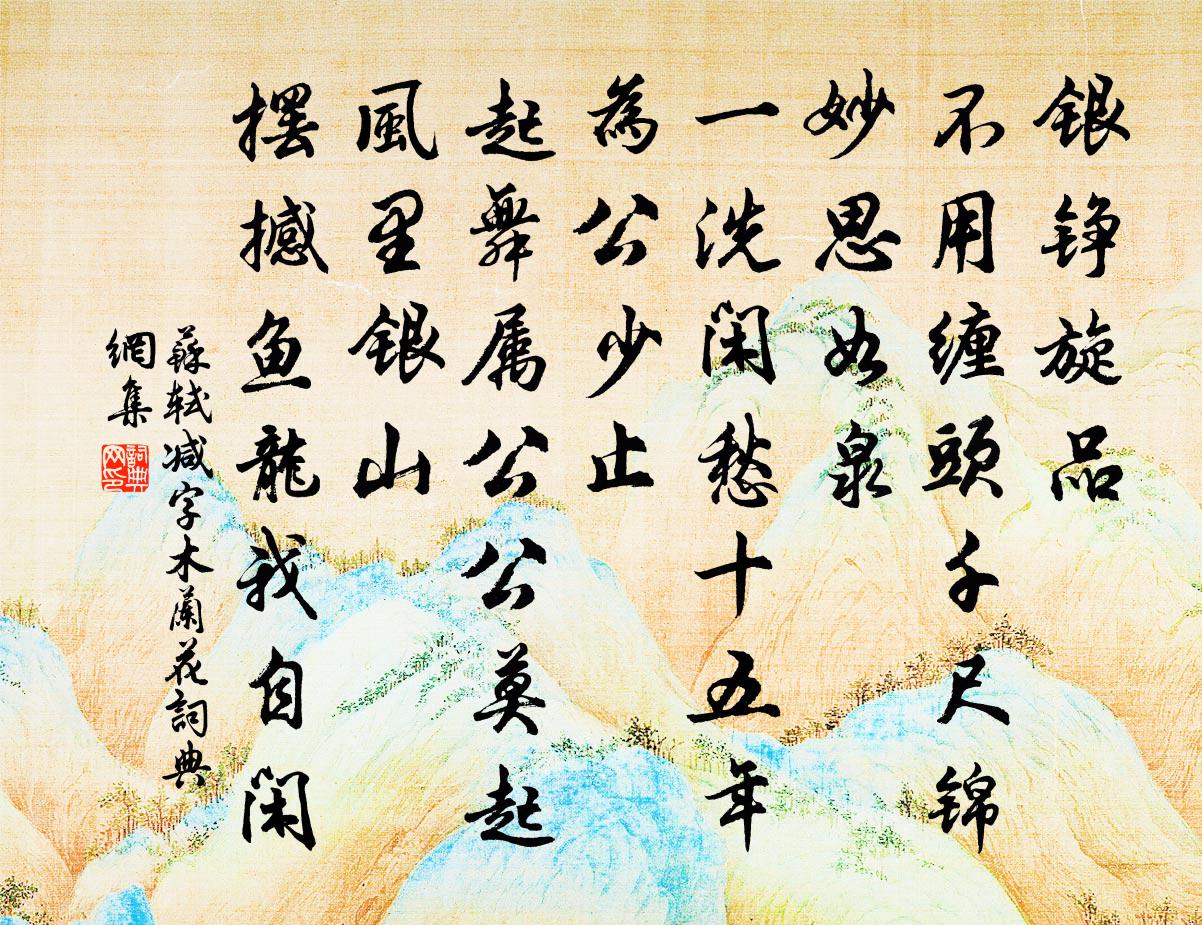 银铮旋品
不用缠頭千尺锦
妙思如泉
一洗闲愁十五年
為公少止
起舞属公公莫起
風里银山
摆撼鱼龍我自闲
蘇轼减字木蘭花詞典
網集
詞典
网印